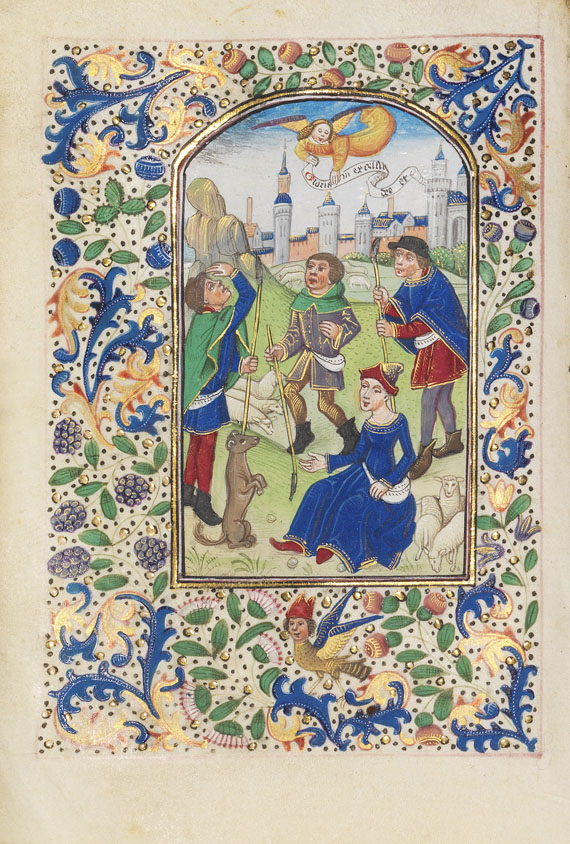 Gloria in excelsis deo et